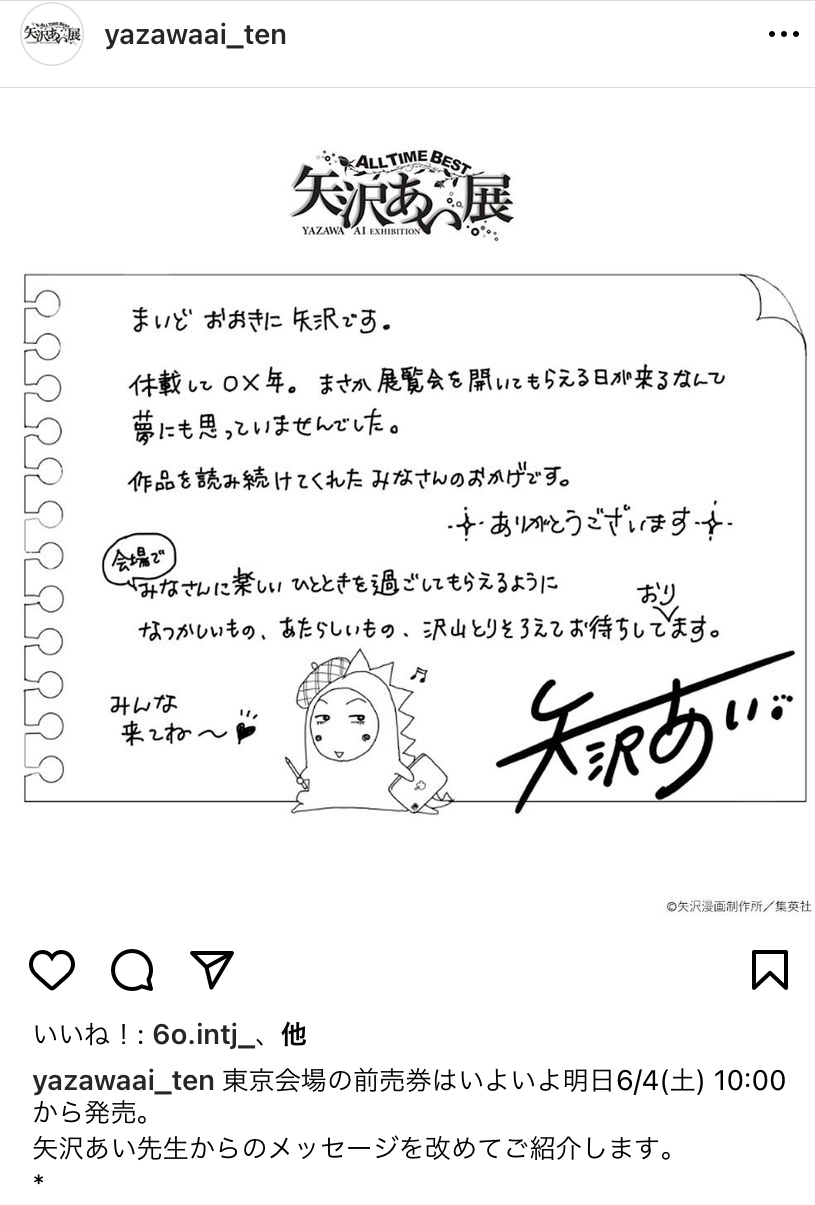 矢沢あい展
yazawaai_ten
ALL TIME BEST
矢沢あい展
YAZAWA AI EXHIBITION
まいど おおきに 矢沢です。
休載して〇×年。まさか展覧会を開いてもらえる日が来るなんて
夢にも思っていませんでした。
作品を読み続けてくれたみなさんのおかげです。
ありがとうございます
会場で
みなさんに楽しいひとときを過ごしてもらえるように
おり
なつかしいもの、あたらしいもの、沢山とりそろえてお待ちしてます。
みんな
来てね〜
矢沢あい
©矢沢漫画制作所／集英社
いいね！: 6o.intj_、他
yazawaai_ten 東京会場の前売券はいよいよ明日6/4(土) 10:00
から発売。
矢沢あい先生からのメッセージを改めてご紹介します。
*